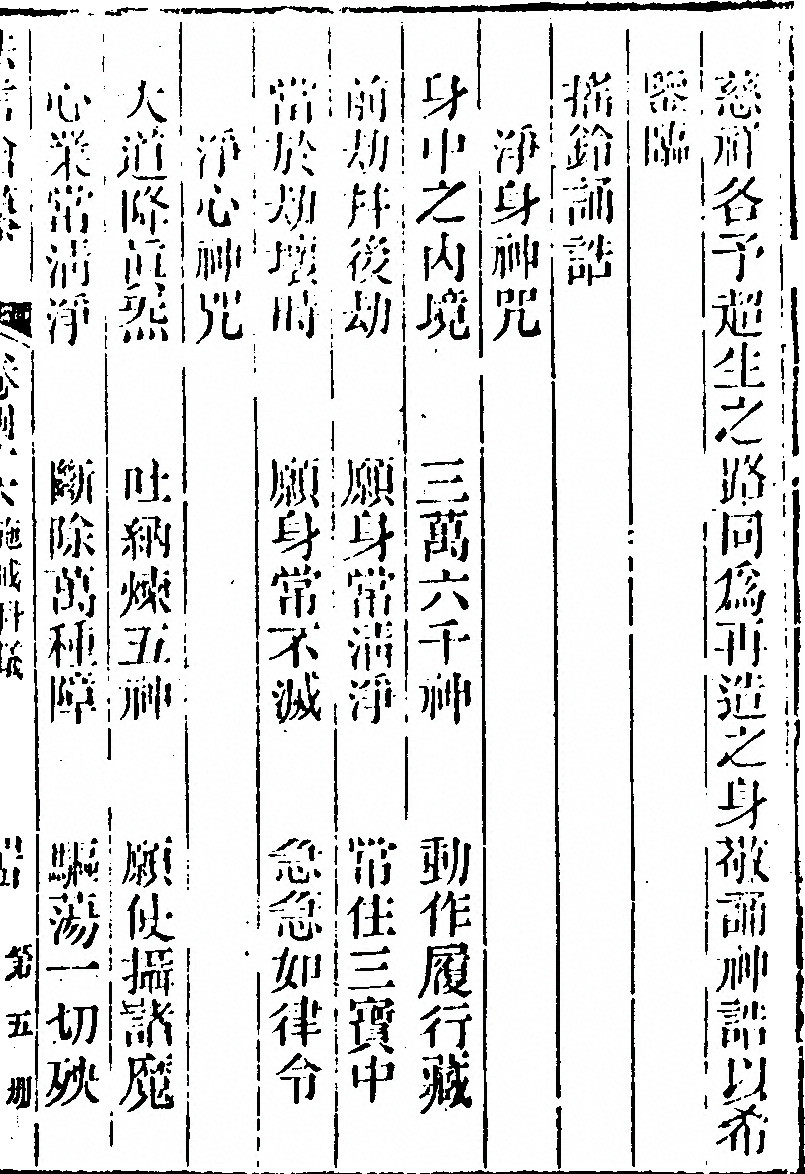 慈祥各予超生之路同爲再造之身敬誦神誥以希
鑒臨
搖鈴誦誥
淨身神咒
身中之內境 三萬六千神 動作履行藏
前劫并後劫 願身常淸淨 常住三寶中
當於劫壞時 願身常不滅 急急如律令
淨心神咒
大道降眞炁 吐納煉五神 願使攝諸魔
心業常淸淨 斷除萬種障 驅蕩一切殃
施戒科儀 第五册